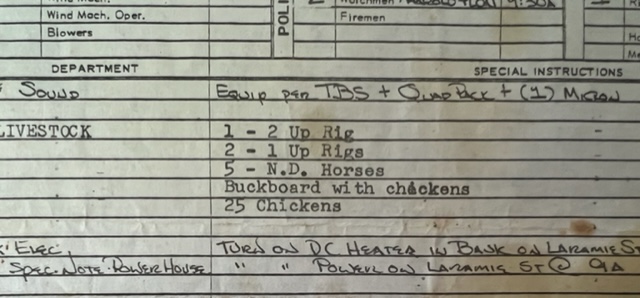 Wind Mach. Oper.
Firemen
Blowers
POLI
DEPARTMENT SPECIAL INSTRUCTIONS
SOUND EQUIP PER TBS + QUAD PACK + (1) MICRON
LIVESTOCK 1 - 2 Up Rig -
2 - 1 Up Rigs
5 - N.D. Horses
Buckboard with chickens
25 Chickens
ELEC. TURN ON DC HEATER IN BANK ON LARAMIE ST
SPEC. NOTE: POWER HOUSE " " POWER ON LARAMIE ST @ 9A